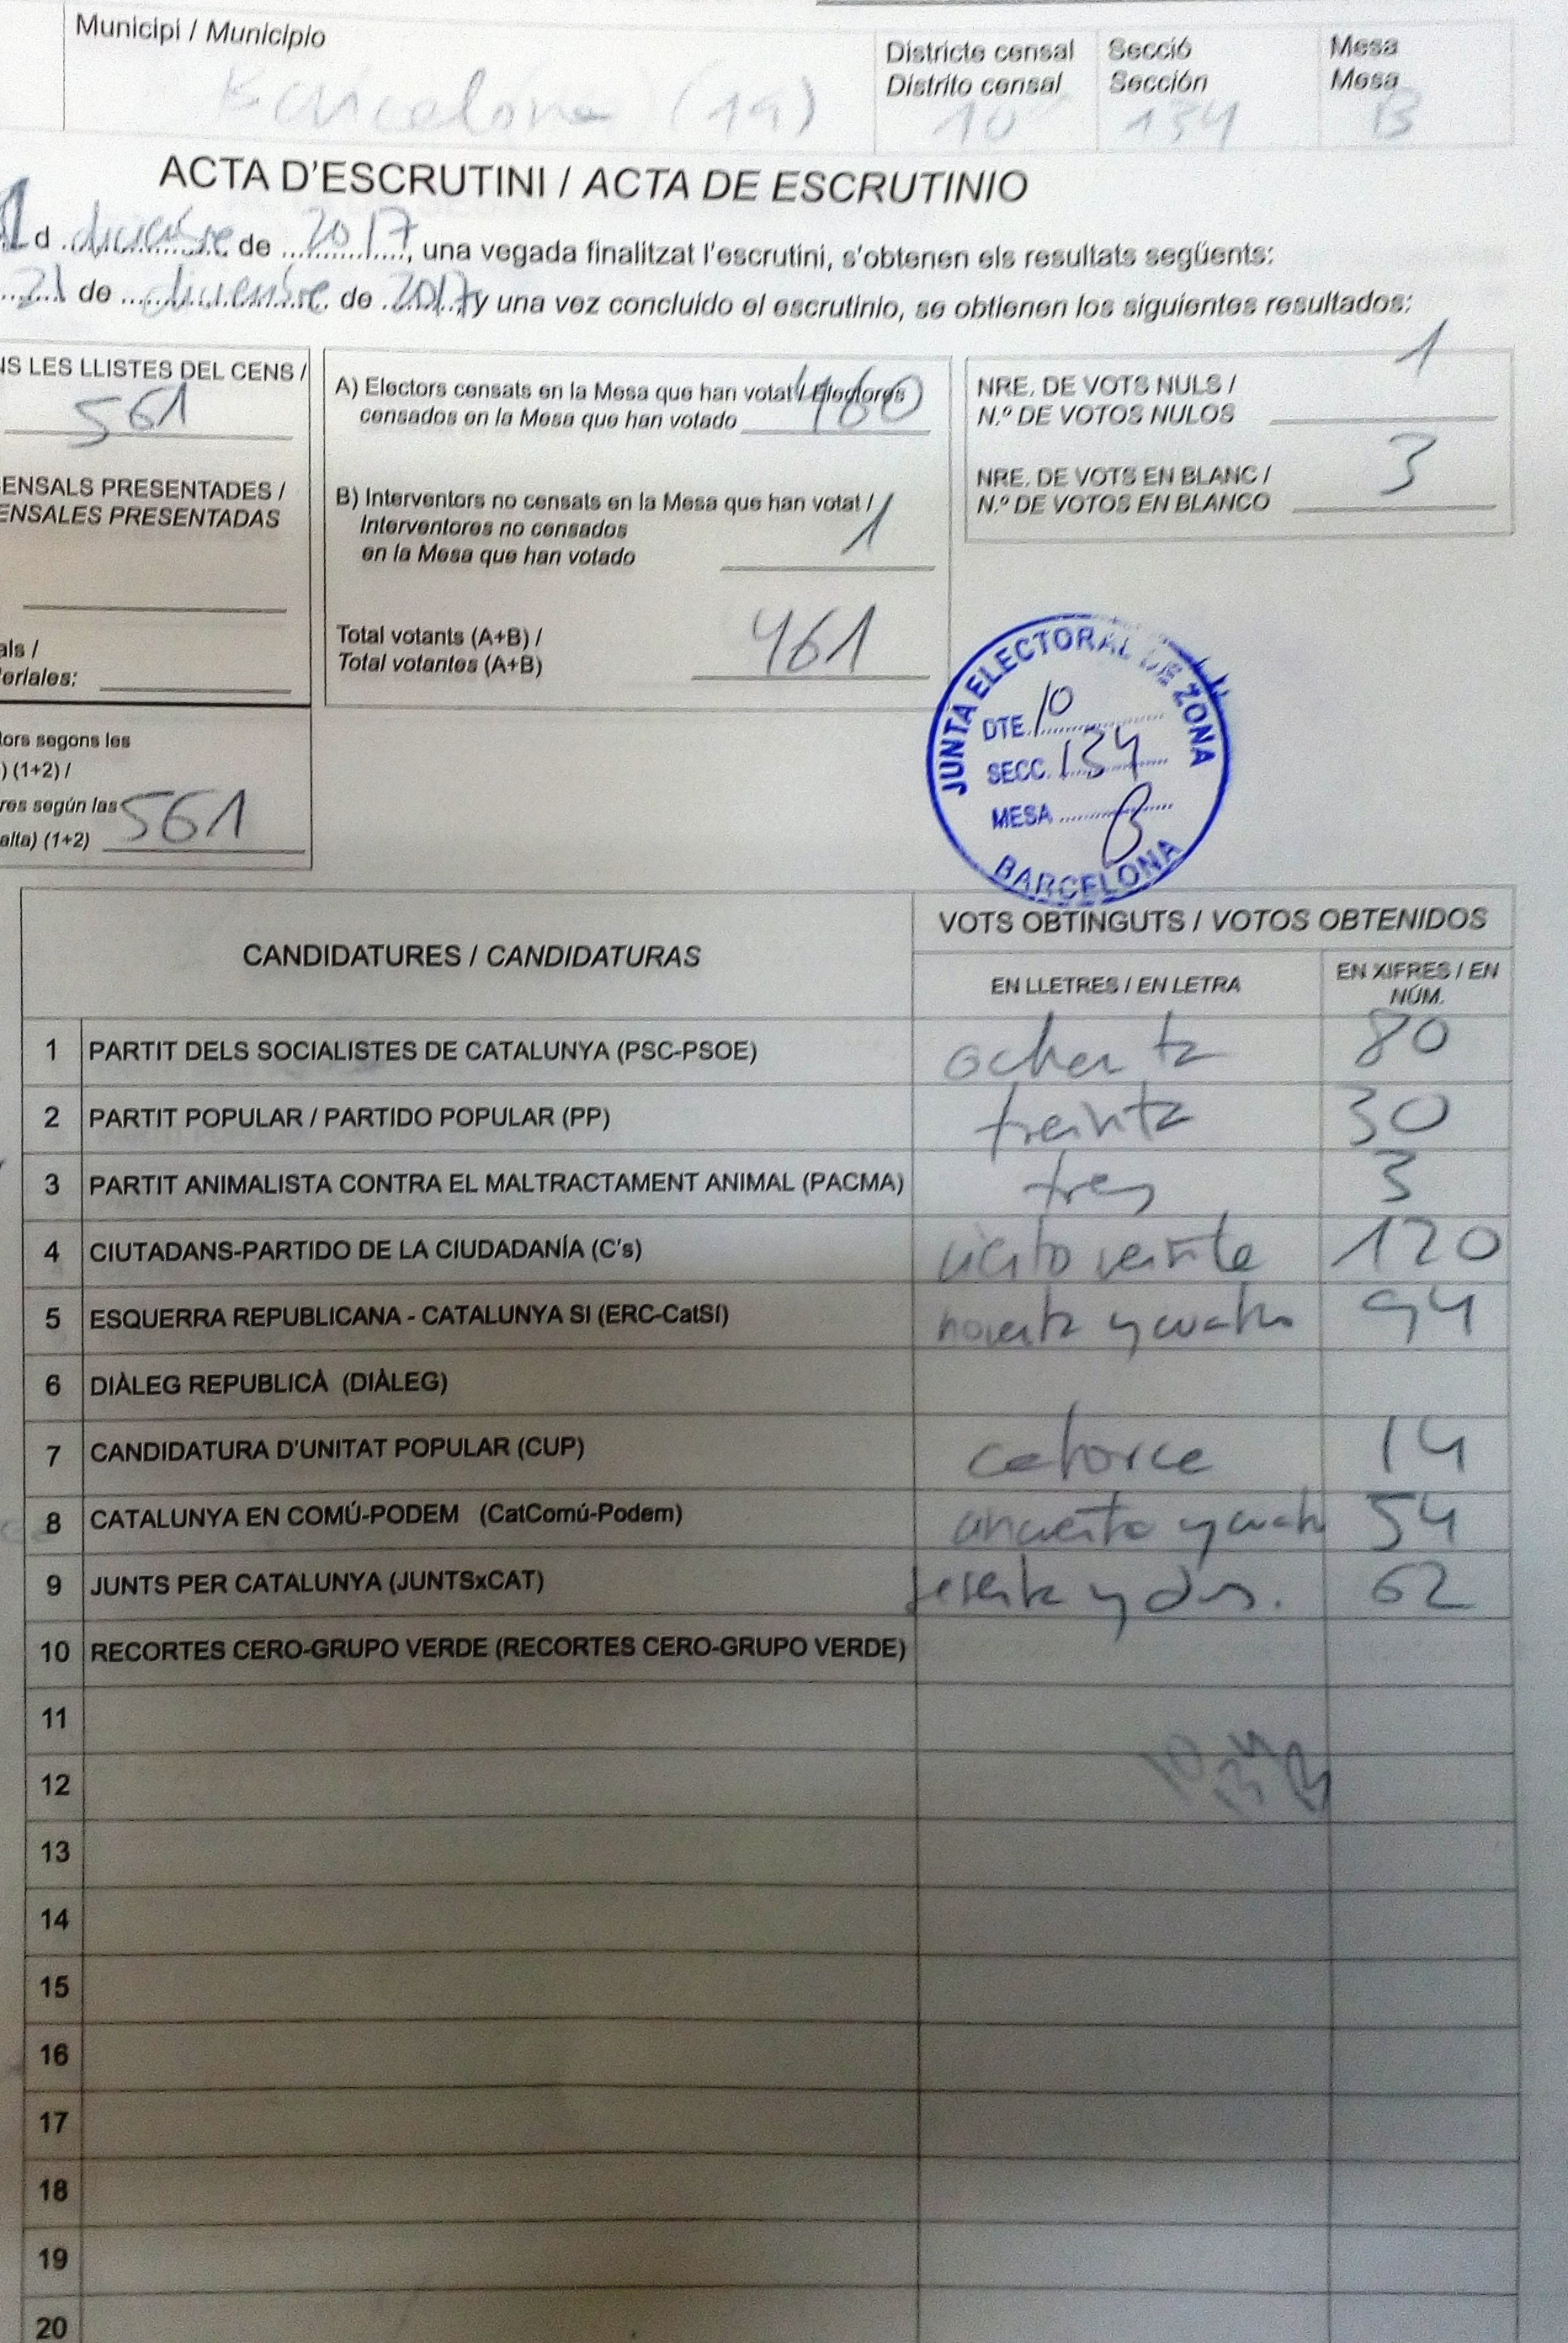 Municipi / Municipio
Districte censal
Distrito censal
Secció
Sección
Mesa
Mesa
Barcelona (19)
10
134
B
ACTA D'ESCRUTINI / ACTA DE ESCRUTINIO
d diciembre de 2017, una vegada finalitzat l'escrutini, s'obtenen els resultats següents:
21 de diciembre de 2017 y una vez concluido el escrutinio, se obtienen los siguientes resultados:
NS LES LLISTES DEL CENS /
561
ENSALS PRESENTADES /
ENSALES PRESENTADAS
als /
eriales:
tors segons les
) (1+2) /
res según las
alta) (1+2) 561
A) Electors censats en la Mesa que han votat / Electores
censados en la Mesa que han votado 460
B) Interventors no censats en la Mesa que han votat /
Interventores no censados
en la Mesa que han votado 1
Total votants (A+B) /
Total votantes (A+B) 461
NRE. DE VOTS NULS /
N.º DE VOTOS NULOS 1
NRE. DE VOTS EN BLANC /
N.º DE VOTOS EN BLANCO 3
JUNTA ELECTORAL DE ZONA
DTE. 10
SECC. 134
MESA B
BARCELONA
CANDIDATURES / CANDIDATURAS
VOTS OBTINGUTS / VOTOS OBTENIDOS
EN LLETRES / EN LETRA
EN XIFRES / EN
NÚM.
1 PARTIT DELS SOCIALISTES DE CATALUNYA (PSC-PSOE) ochenta 80
2 PARTIT POPULAR / PARTIDO POPULAR (PP) treinta 30
3 PARTIT ANIMALISTA CONTRA EL MALTRACTAMENT ANIMAL (PACMA) tres 3
4 CIUTADANS-PARTIDO DE LA CIUDADANÍA (C's) ciento veinte 120
5 ESQUERRA REPUBLICANA - CATALUNYA SI (ERC-CatSÍ) noventa y cuatro 94
6 DIÀLEG REPUBLICÀ (DIÀLEG)
7 CANDIDATURA D'UNITAT POPULAR (CUP) catorce 14
8 CATALUNYA EN COMÚ-PODEM (CatComú-Podem) cincuenta y cuatro 54
9 JUNTS PER CATALUNYA (JUNTSxCAT) sesenta y dos. 62
10 RECORTES CERO-GRUPO VERDE (RECORTES CERO-GRUPO VERDE)
11
12
13
14
15
16
17
18
19
20